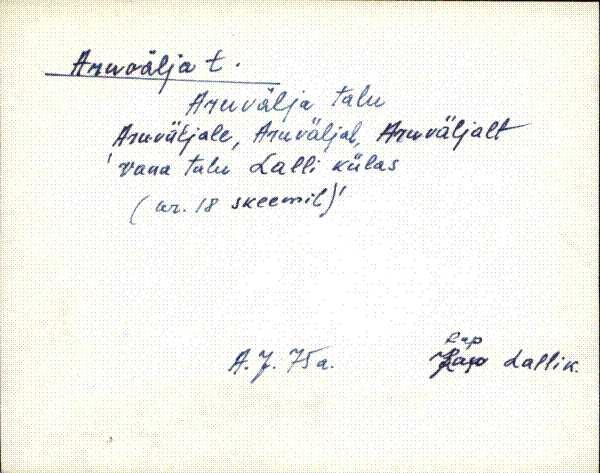 Aruvälja t.
Aruvälja talu
Aruväljale, Aruväljal, Aruväljalt
'vana talu Lalli külas
(nr. 18 skeemil)'
Rap
A. J. 75 a. Lalli k.